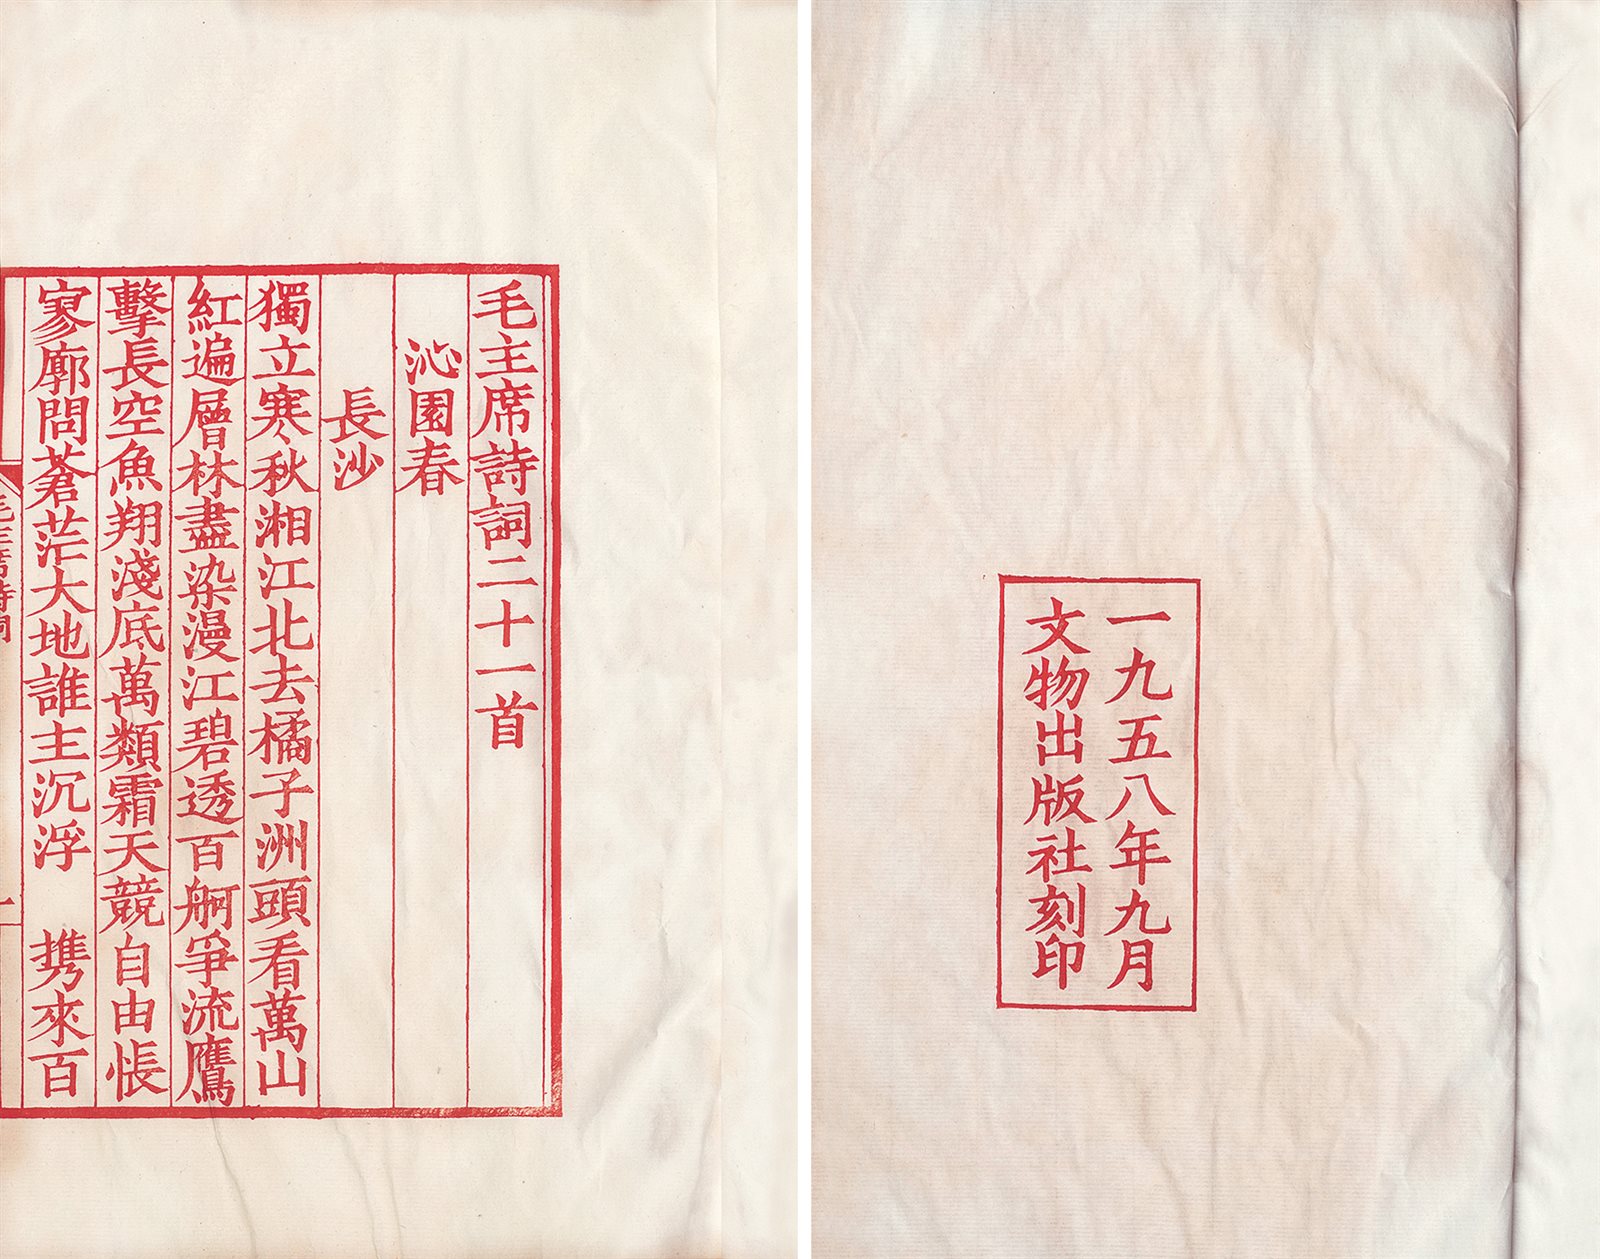 毛主席詩詞二十一首
沁園春
長沙
獨立寒秋湘江北去橘子洲頭看萬山
紅遍層林盡染漫江碧透百舸爭流鷹
擊長空魚翔淺底萬類霜天競自由悵
寥廓問蒼茫大地誰主沉浮　携來百
毛主席詩詞
一
一九五八年九月
文物出版社刻印